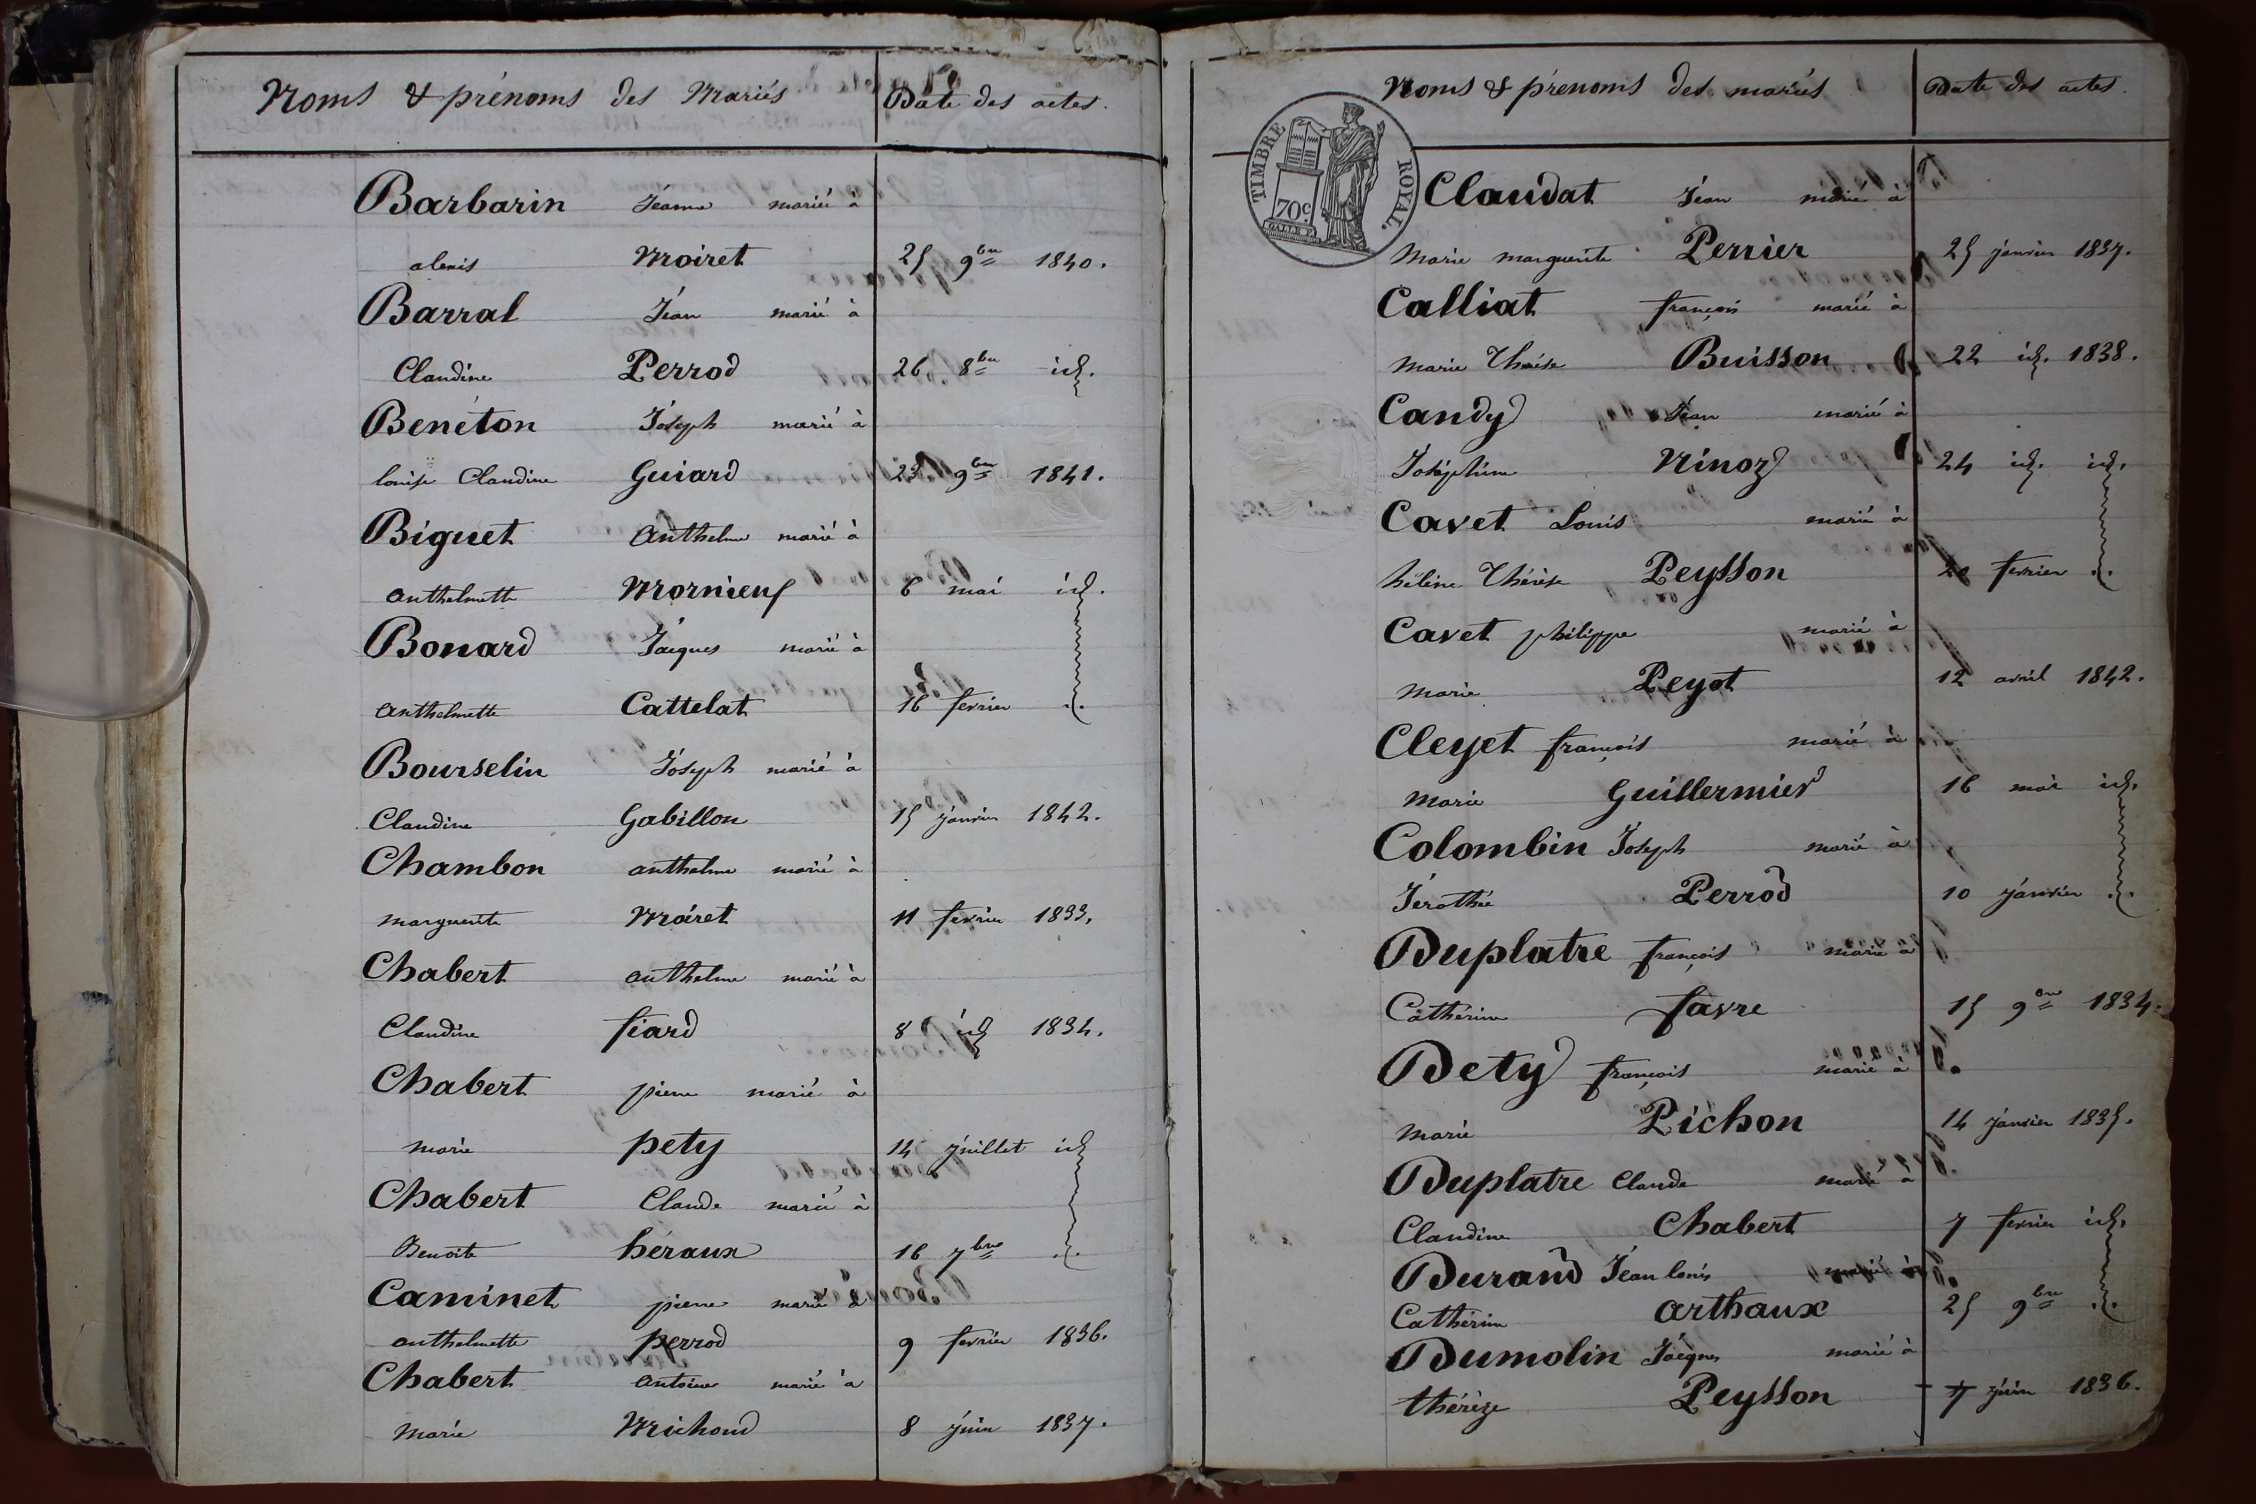 Noms & prénoms des Mariés Date des actes.
Barbarin Jeanne marié à
alexis Moiret 25 9bre 1840.
Barral Jean marié à
Claudine Perrod 26 8bre id.
Benéton Joseph marié à
louise Claudine Guiard 23 9bre 1841.
Biguet Anthelme marié à
anthelmette Mornieuf 6 mai id.
Bonard Jacques marié à
anthelmette Cattelat 16 fevrier .
Bourselin Joseph marié à
Claudine Gabillon 15 janvier 1842.
Chambon anthelme marié à
marguerite Moiret 11 fevrier 1833.
Chabert anthelme marié à
Claudine fiard 8 id 1834.
Chabert pierre marié à
marie pety 14 juillet id
Chabert Claude marié à
Benoite héraux 16 7bre .
Caminet pierre marié à
anthelmette perrod 9 fevrier 1836.
Chabert antoine marié à
Marie Michoud 8 juin 1837.
Noms & prénoms des mariés Date des actes.
TIMBRE ROYAL.
70c.
Claudat Jean marié à
Marie marguerite Perrier 25 janvier 1837.
Calliat françois marié à
Marie Thérèse Buisson 22 id. 1838.
Candy Jean marié à
Joséphine Ninoz 24 id. id.
Cavet Louis marié à
hélène Thérèse Peysson 20 fevrier .
Cavet philippe marié à
Marie Peyot 12 avril 1842.
Cleyet françois marié à
Marie Guillermier 16 mai id.
Colombin Joseph marié à
Jérothée Perrod 10 janvier .
Duplatre françois marié à
Cathérine favre 15 9bre 1834.
Dety françois marié à
Marie Pichon 14 janvier 1835.
Duplatre Claude marié à
Claudine Chabert 7 fevrier id.
Durand Jean louis marié à
Cathérine arthaux 25 9bre .
Dumolin Jacques marié à
thérèze Peysson 7 juin 1836.